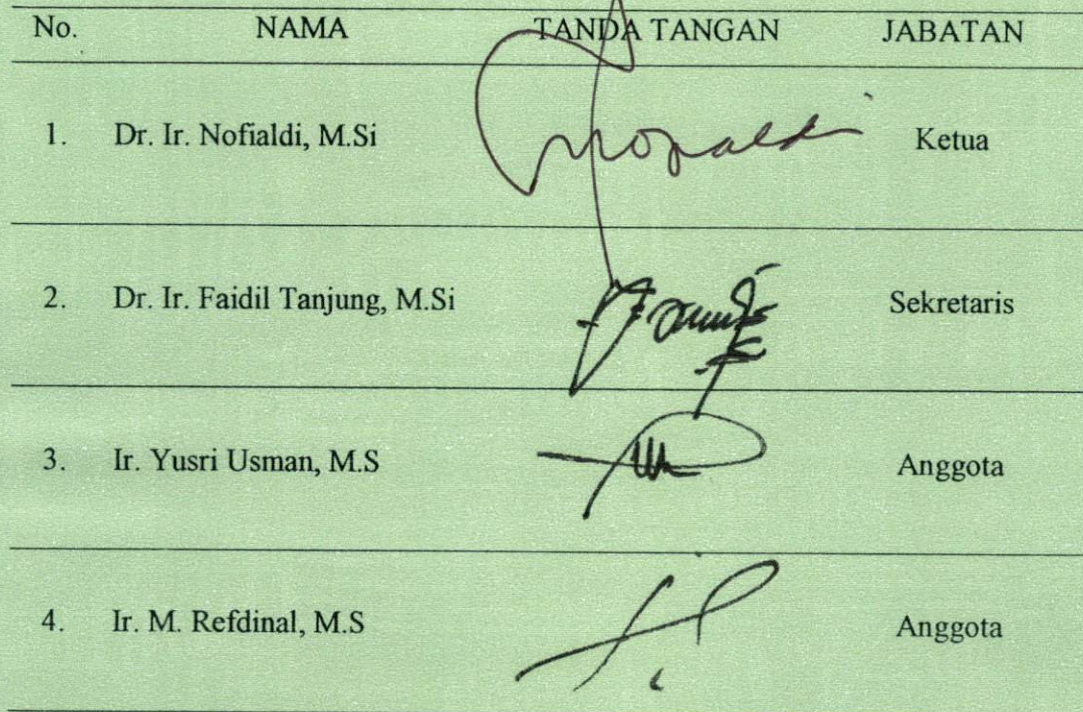 No. NAMA TANDA TANGAN JABATAN
1. Dr. Ir. Nofialdi, M.Si Ketua
2. Dr. Ir. Faidil Tanjung, M.Si Sekretaris
3. Ir. Yusri Usman, M.S Anggota
4. Ir. M. Refdinal, M.S Anggota